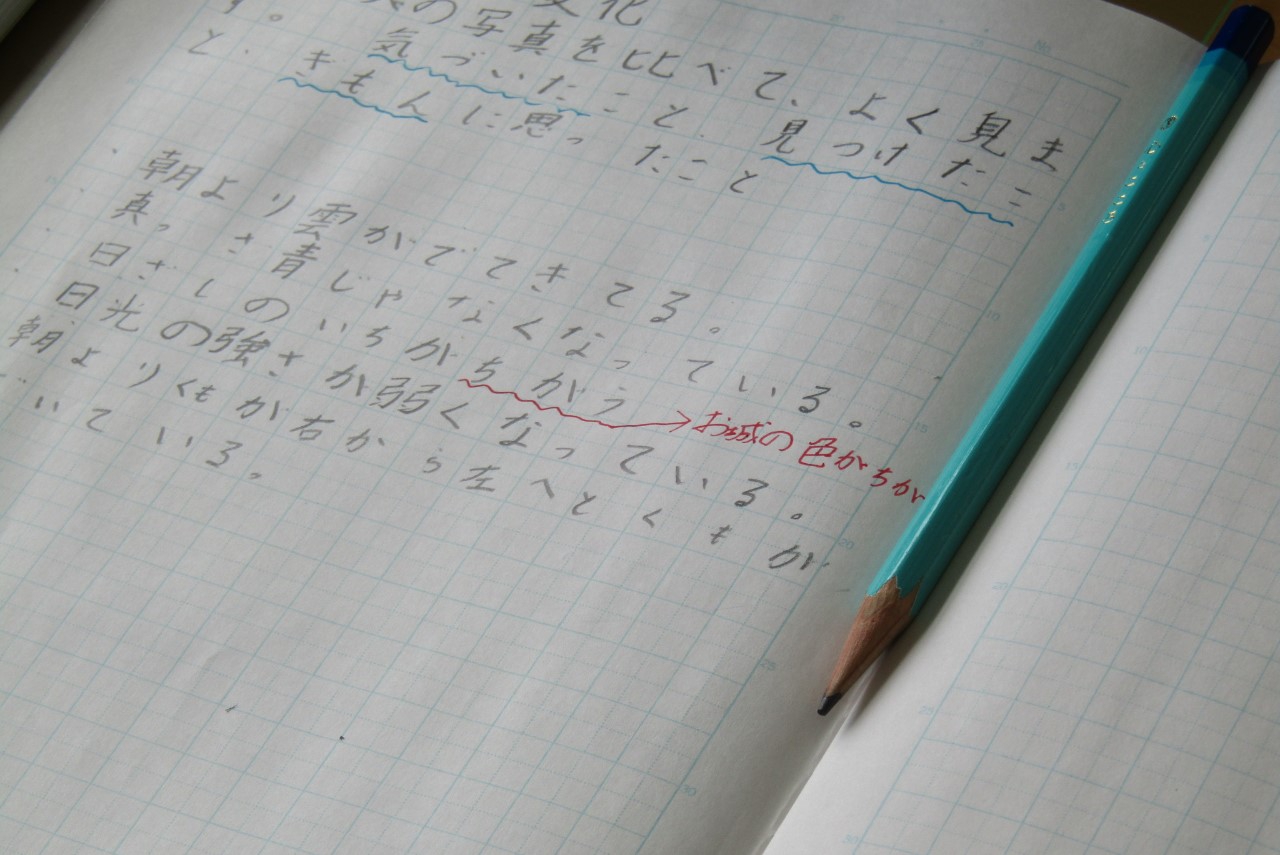 化
の写真を比べて、よく見ま
す。気づいたこと、見つけたこ
と、きもんに思ったこと
・朝より雲がでてきてる。
真っさ青じゃなくなっている。
・日ざしのいちがちがう→お城の色がちが
・日光の強さが弱くなっている。
朝よりくもが右から左へとくもが
いている。